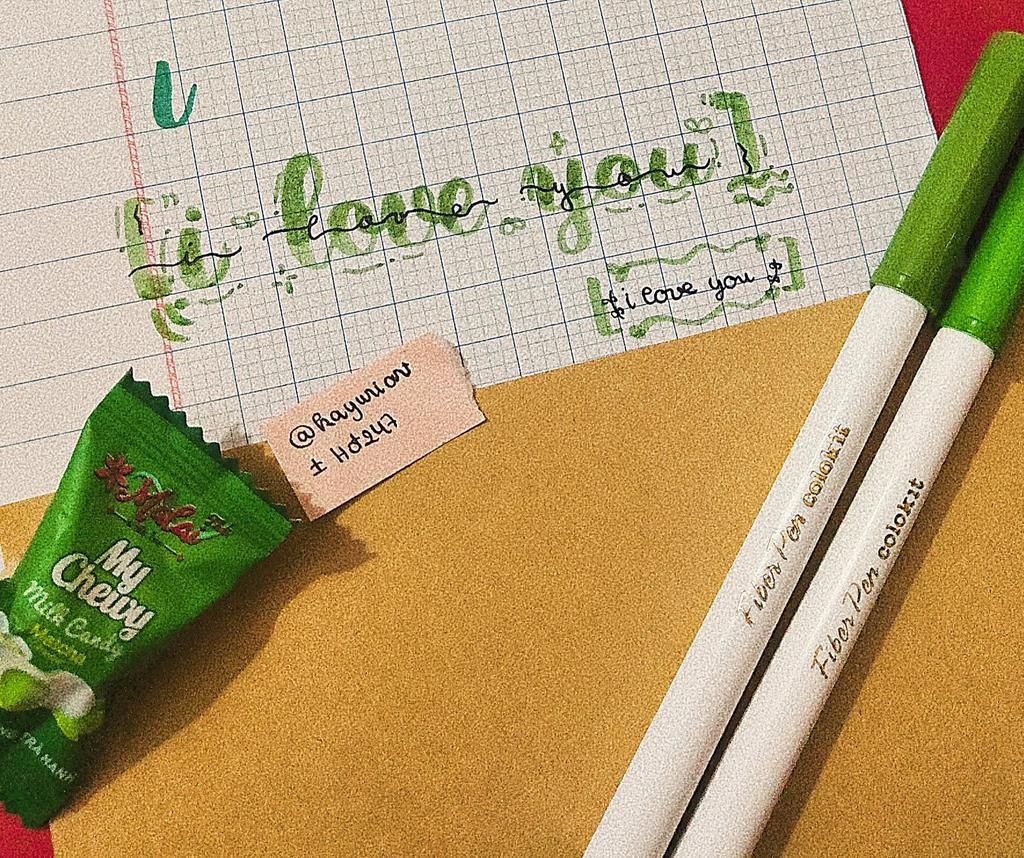 i
[i love you]
{ i love you }
i love you
@kayurion
± Hot247
My
Chewy
Milk Candy
Melon
Fiber Pen colokit
Fiber Pen colokit